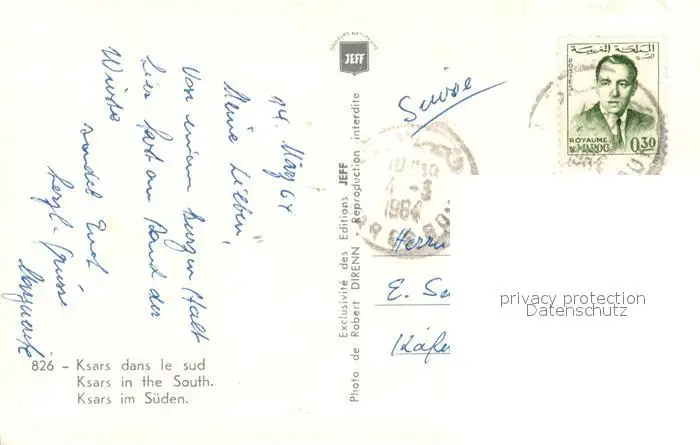 14. März 64
Meine Lieben,
Von einem kurzen Halt
hier fast am Rand der
Wüste
sendet Euch
herzl. Grüsse
Marguerite
826 - Ksars dans le sud
Ksars in the South.
Ksars im Süden.
JEFF
Exclusivité des Editions JEFF
Photo de Robert DIRENN - Reproduction interdite
Suisse
المملكة المغربية
POSTES
ROYAUME
DU MAROC 0,30
1964
Herrn
E.
privacy protection
Datenschutz